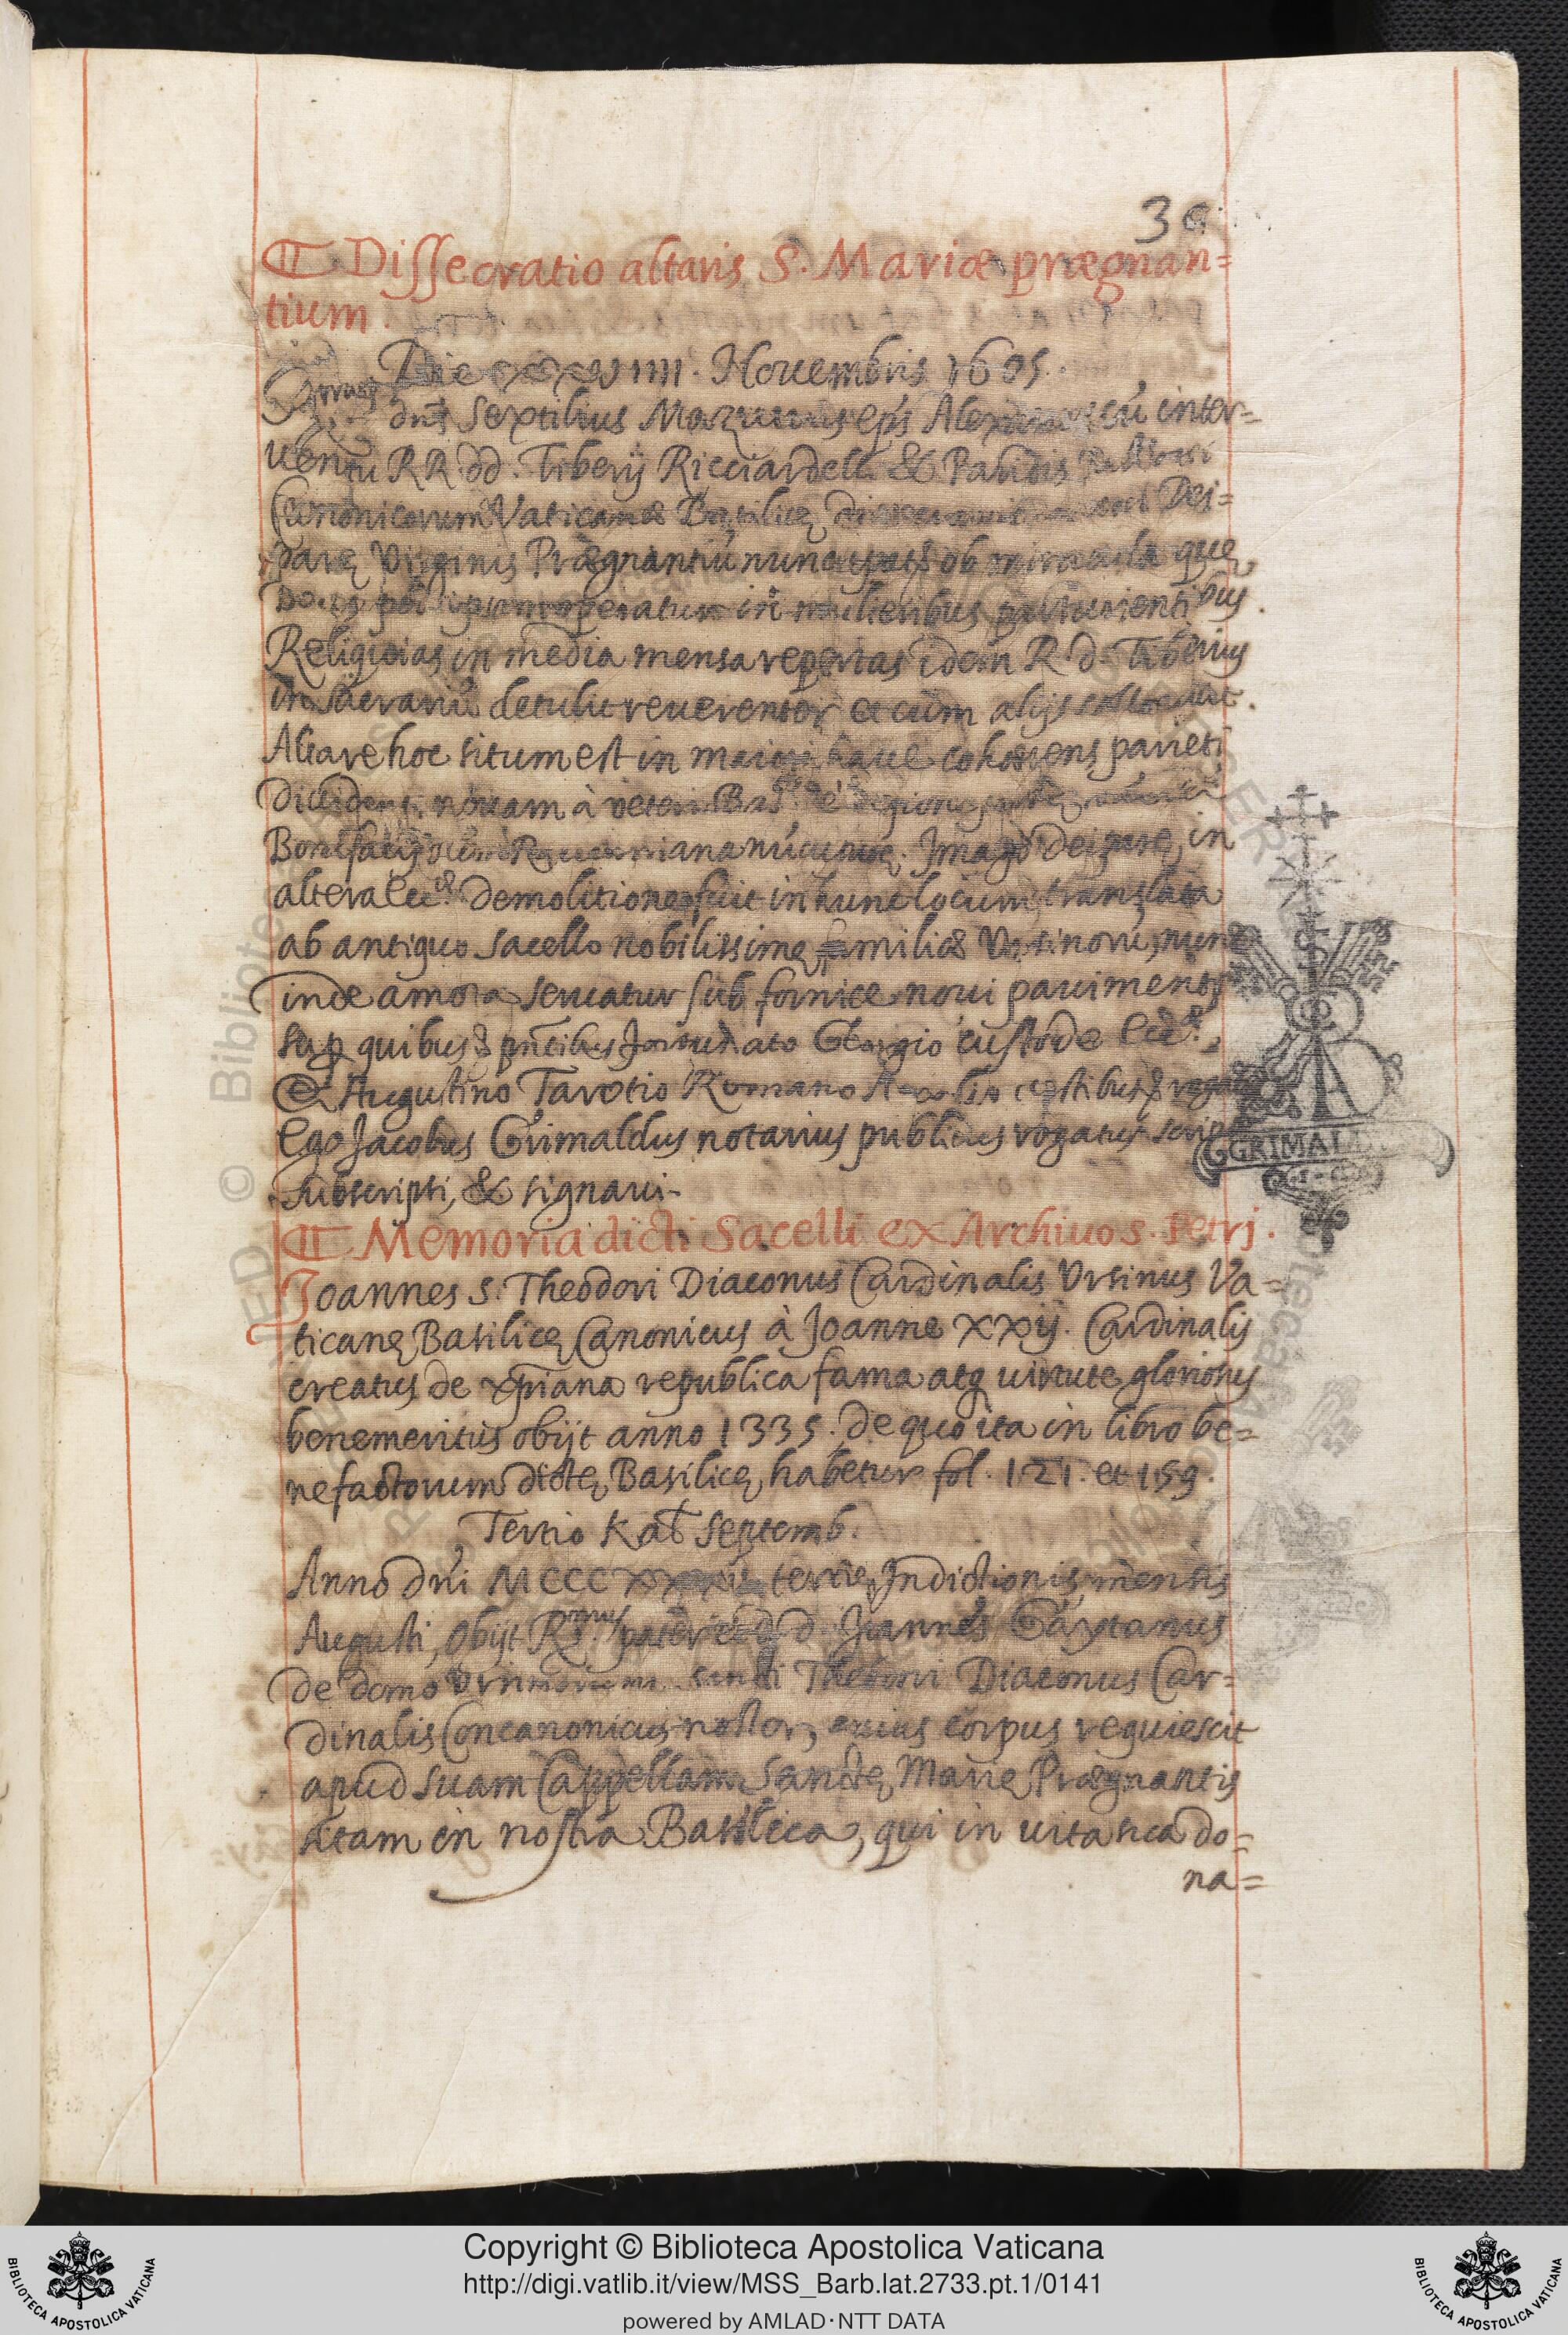 ¶ Dissecratio altaris S. Mariæ prægnan=
tium.
Die xxviiii. Nouembris 1605.
dn̄s Sextilius Mazucus ep̄s Alexanus cū inter=
uentu RR. dd. Tiberij Ricciardelli & Paridis Pallotti
Canonicorum Vaticanæ Basilicę Dei=
parę Virginis Prægnantiū nuncupatū ob miracula quę
operatur in mulieribus parturientibus.
Religuias in media mensa repertas idem R. d. Tiberius
in sacrariū detulit reuerenter et cum alijs collocauit.
Altare hoc situm est in maiori naue cohærens parieti
diuidenti nouam à veteri Bas.ca è regione
Bonifacij Imago deiparę in
altera ecc.æ demolitione fuit in hunc locum translata
ab antiquo sacello nobilissimę familiæ Vrsinorū, nunc
inde amota seruatur sub fornice noui pauimenti
sup quibus & pn̄tibus fortunato Giorgio custode ecc.æ
& Augustino Tarotio Romano testibus & rogatis
Ego Jacobus Grimaldus notarius publicus rogatus scripsi
subscripsi, & signaui.
GRIMAL
¶ Memoria dicti Sacelli ex Archiuo s. Petrj.
Joannes s. Theodori Diaconus Cardinalis Vrsinus Va=
ticanę Basilicę Canonicus à Joanne xxij. Cardinalis
creatus de xp̄iana republica fama atq uirtute gloriosus
benemeritus obijt anno 1335. de quo ita in libro be=
nefactorum dictę Basilicę habetur fol. 121. et 159.
Tertio Kal Septemb.
Anno dn̄i MCCC tertię Indictionis mensis
Augusti, obijt R.mus pater et d. d. Joannes Gaytanus
de domo Vrsinorum sancti Theodori Diaconus Car=
dinalis Concanonicus noster, cuius corpus requiescit
apud suam Cappellam Sanctę Marię Prægnantis
sitam in nostra Basilica, qui in uita sua do=
na=
Copyright © Biblioteca Apostolica Vaticana
http://digi.vatlib.it/view/MSS_Barb.lat.2733.pt.1/0141
powered by AMLAD · NTT DATA
BIBLIOTECA APOSTOLICA VATICANA
BIBLIOTECA APOSTOLICA VATICANA